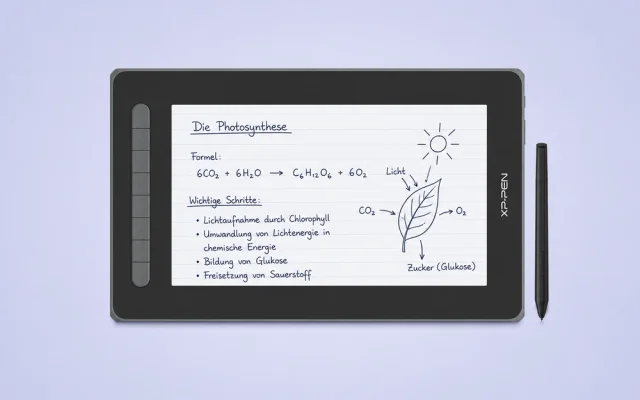 Die Photosynthese
Formel:
6CO₂ + 6H₂O → C₆H₁₂O₆ + 6O₂
Wichtige Schritte:
• Lichtaufnahme durch Chlorophyll
• Umwandlung von Lichtenergie in
chemische Energie
• Bildung von Glukose
• Freisetzung von Sauerstoff
Licht
CO₂
O₂
Zucker (Glukose)
XP-PEN